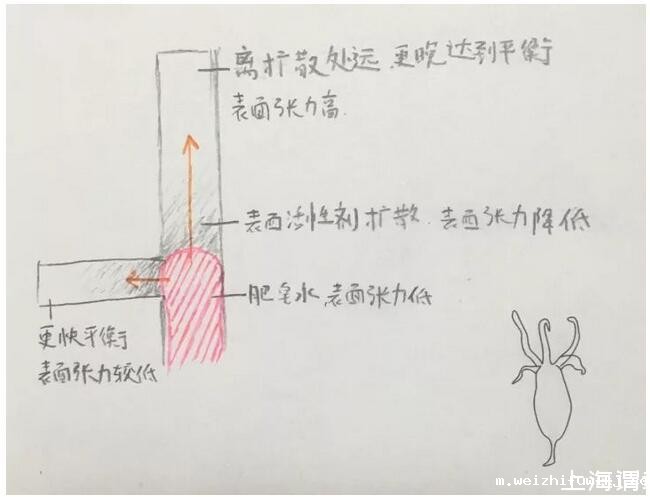 离扩散处远 更晚达到平衡
表面张力高.
表面活性剂扩散. 表面张力降低
肥皂水 表面张力低
更快平衡
表面张力较低
上海谓